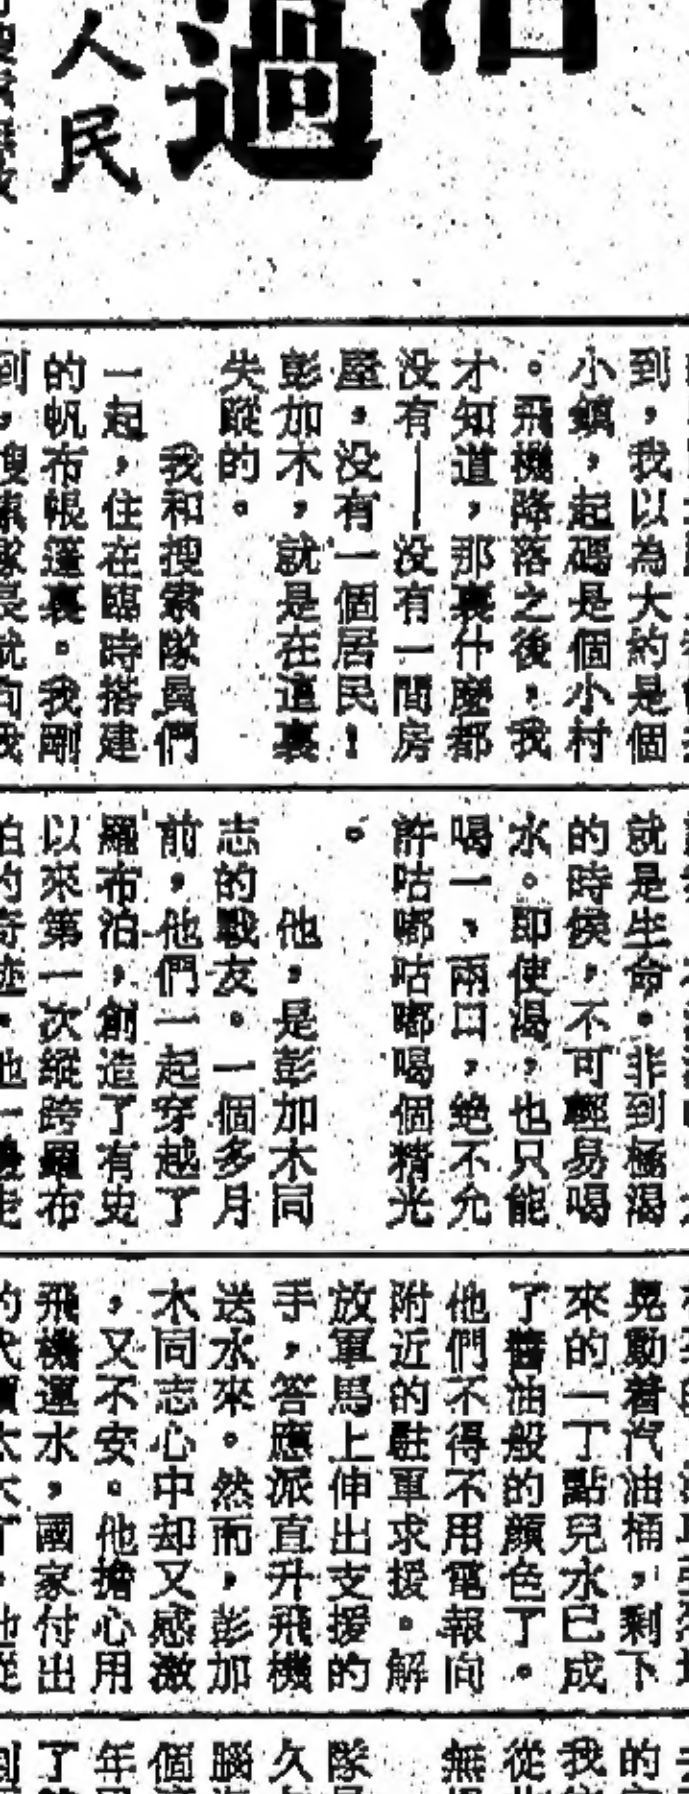 過
人民
到，我以為大約是個
小鎮，起碼是個小村
。飛機降落之後，我
才知道，那裏什麼都
沒有——沒有一間房
屋，沒有一個居民！
彭加木，就是在這裏
失蹤的。
我和搜索隊員們
一起，住在臨時搭建
的帆布帳篷裏。我剛
到，搜索隊長就向我
就是生命。非到極渴
的時候，不可輕易喝
水。即使渴，也只能
喝一、兩口，絕不允
許咕嘟咕嘟喝個精光
。
他，是彭加木同
志的戰友。一個多月
前，他們一起穿越了
羅布泊，創造了有史
以來第一次縱跨羅布
泊的奇迹。他一邊走
晃動着汽油桶，剩下
來的一丁點兒水已成
了醬油般的顏色了。
他們不得不用電報向
附近的駐軍求援。解
放軍馬上伸出支援的
手，答應派直升飛機
送水來。然而，彭加
木同志心中却又感激
，又不安。他擔心用
飛機運水，國家付出
的代價太大了。他從
的
我
從
無
隊
久
腦
個
年
了